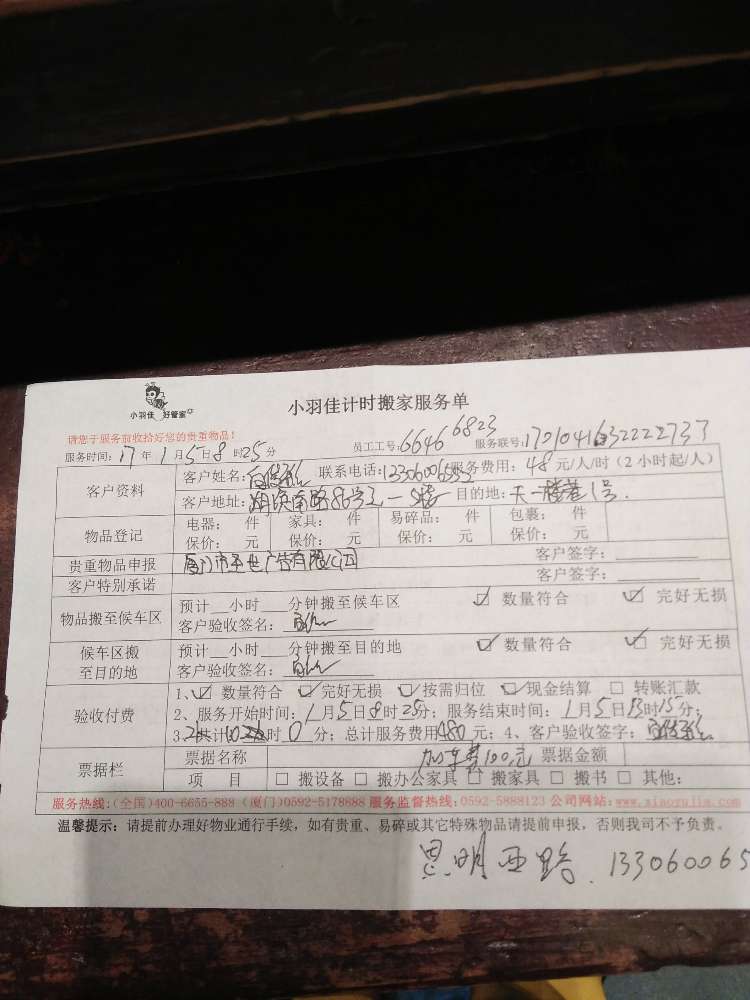 小羽佳 好管家
小羽佳计时搬家服务单
请您于服务前收拾好您的贵重物品！
服务时间：17年1月5日8时25分 员工工号：6646 6823 服务联号：
客户资料 客户姓名： 联系电话： 服务费用：48元/人/时（2小时起/人）
客户地址：湖滨南路86号 目的地：天一楼巷1号.
物品登记 电器： 件 家具： 件 易碎品： 件 包裹： 件
保价： 元 保价： 元 保价： 元 保价： 元
贵重物品申报 厦门市 广告有限公司 客户签字：
客户特别承诺 客户签字：
物品搬至候车区 预计__小时___分钟搬至候车区 ☑ 数量符合 ☑ 完好无损
客户验收签名：
候车区搬至目的地 预计__小时___分钟搬至目的地 ☑ 数量符合 ☑ 完好无损
客户验收签名：
验收付费 1、☑ 数量符合 ☑ 完好无损 ☑ 按需归位 ☑ 现金结算 □ 转账汇款
2、服务开始时间：1月5日8时25分；服务结束时间：1月5日13时15分；
3、 共计10 时0分；总计服务费用480元；4、客户验收签字：
票据栏 票据名称 加车费100元 票据金额
项 目 □ 搬设备 □ 搬办公家具 □ 搬家具 □ 搬书 □ 其他：
服务热线：(全国)400-6655-888 (厦门)0592-5178688 服务监督热线：0592-5888123 公司网站：www.xiaoyujia.com
温馨提示：请提前办理好物业通行手续，如有贵重、易碎或其它特殊物品请提前申报，否则我司不予负责。
思明西路. 133060065